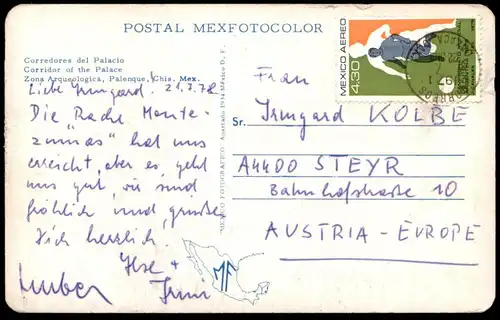 POSTAL MEXFOTOCOLOR
Corredores del Palacio
Corridor of the Palace
Zona Arqueológica, Palenque, Chis. Mex.
Liebe Irmgard! 21.7.78
Die Rache Monte-
zumas" hat uns
erreicht, aber es geht
uns gut, wir sind
fröhlich und grüßen
Dich herzlich.
Ilse +
Irmi
MEXICO FOTOGRAFICO
México D. F.
MF
MEXICO AEREO
4.30
CORREOS
Frau
Sr. Irmgard KOLBE
A4400 STEYR
Bahnhofstraße 10
AUSTRIA-EUROPE